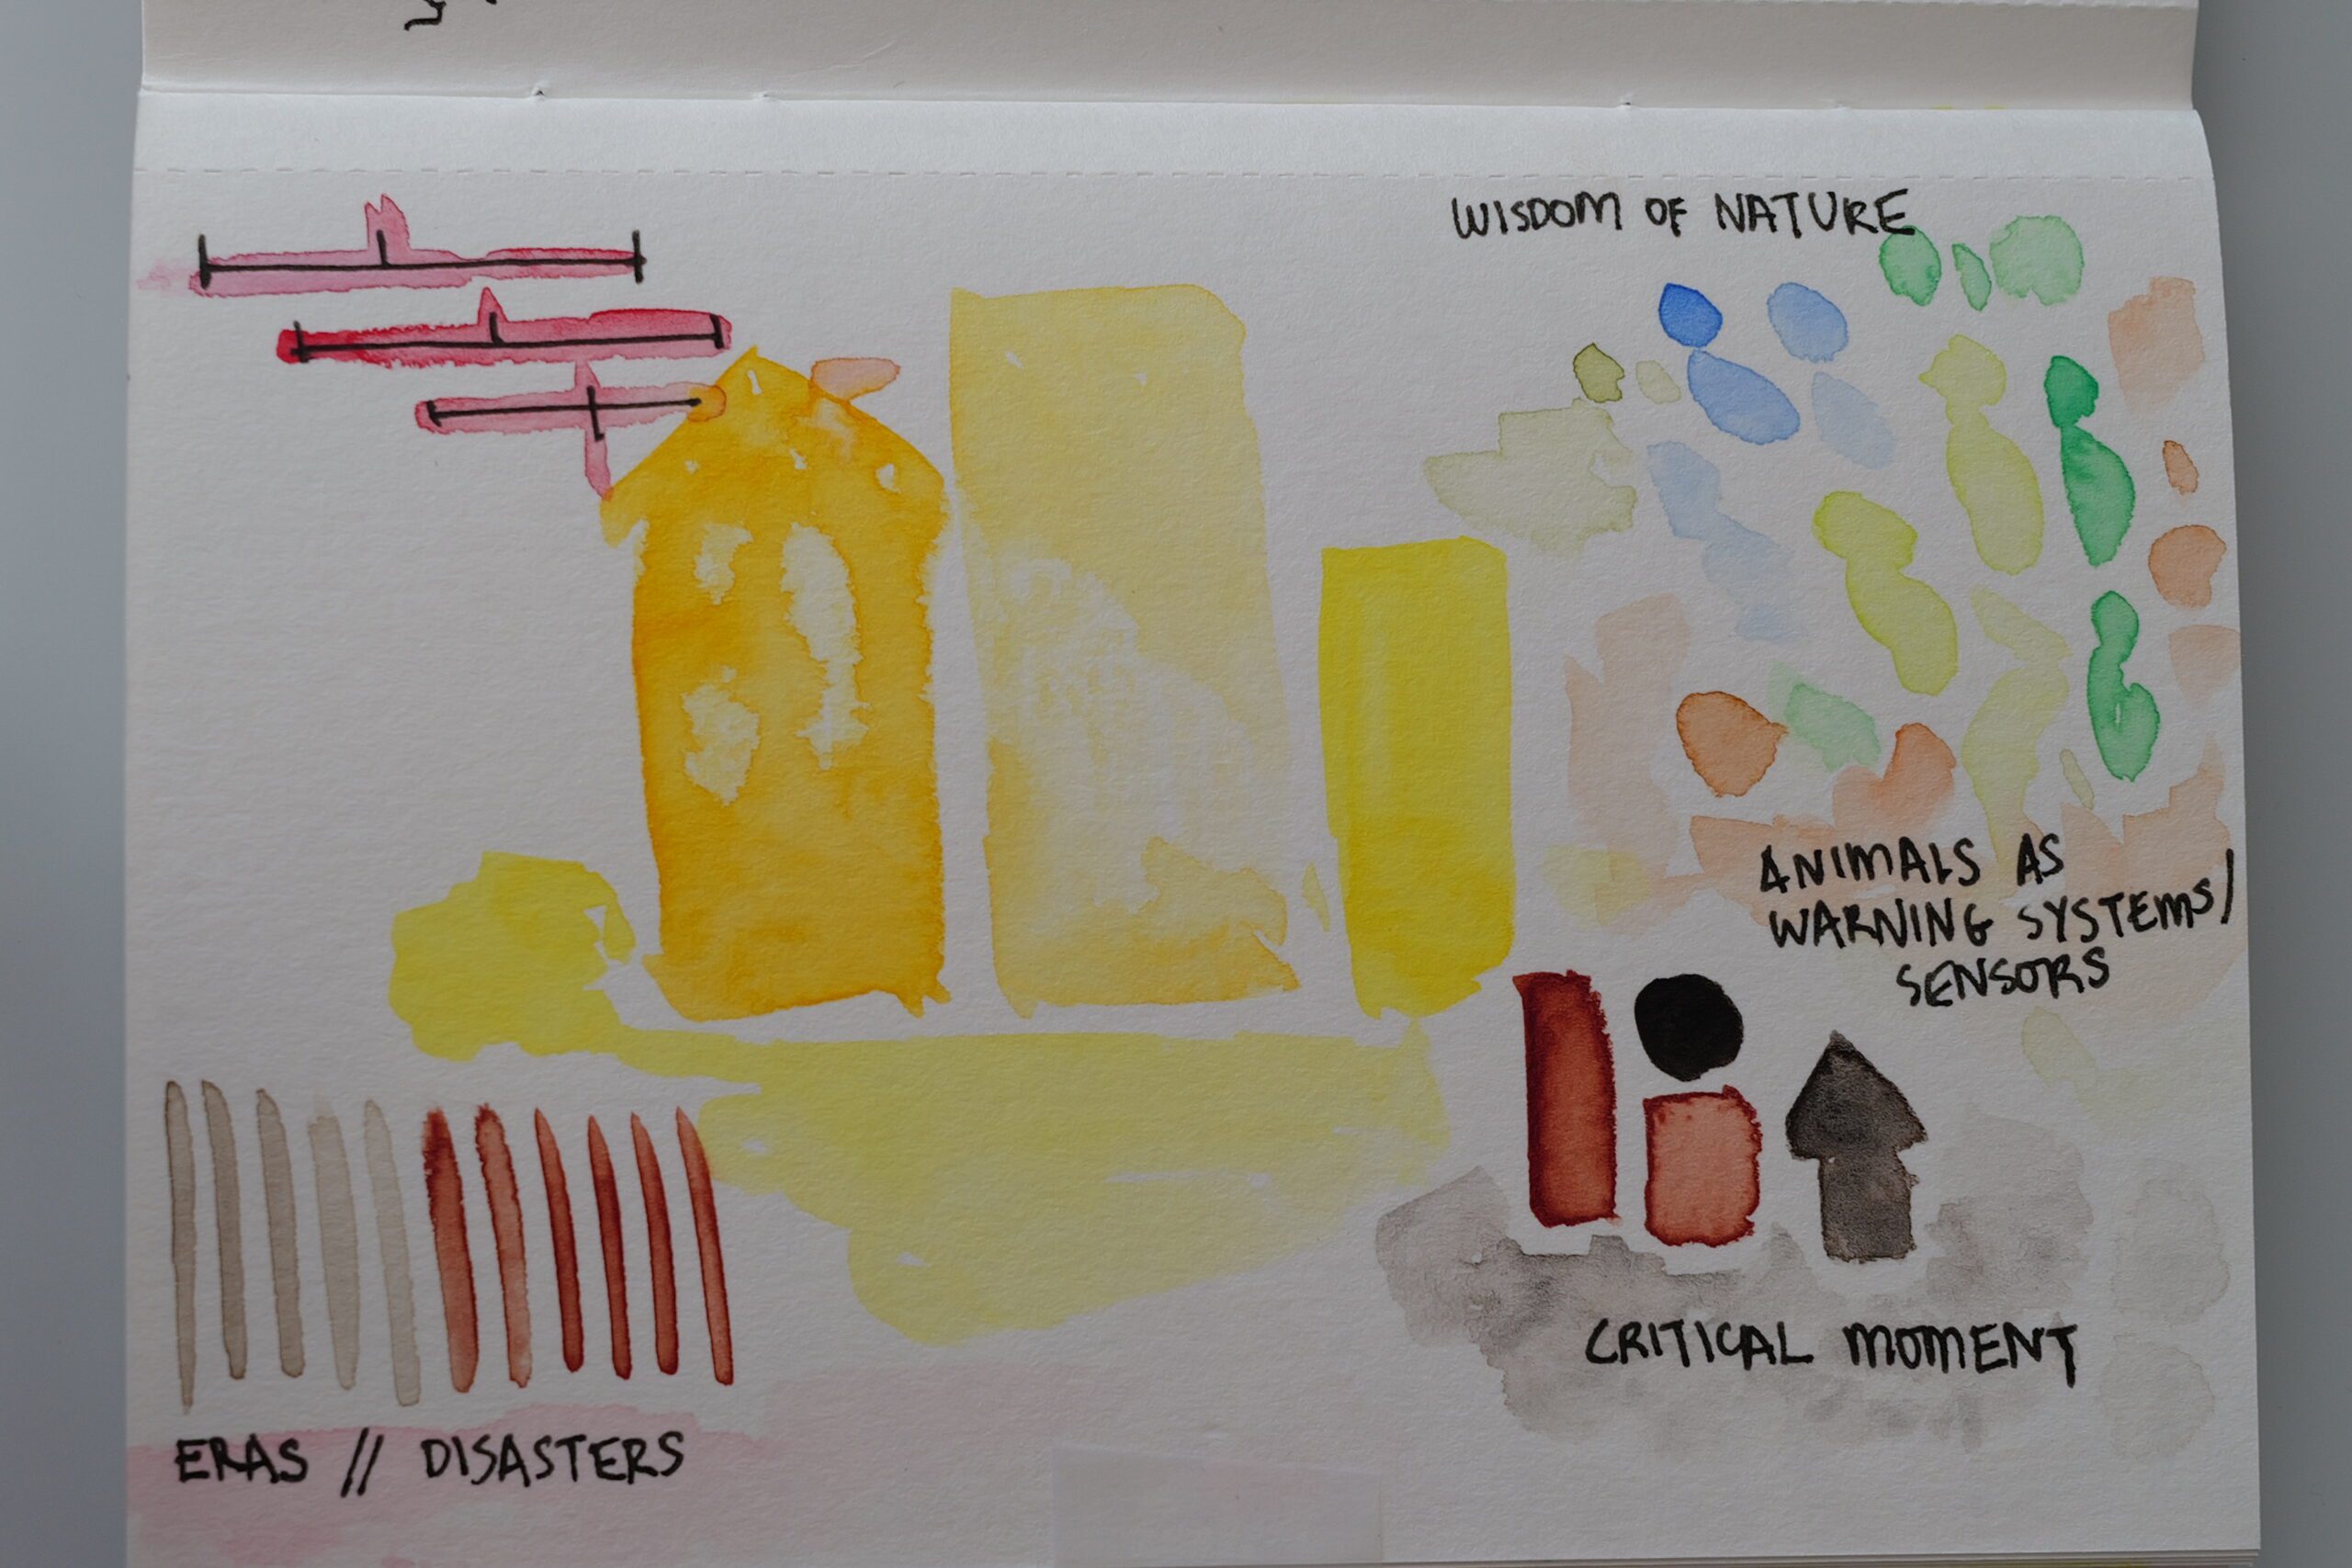 WISDOM OF NATURE
ANIMALS AS
WARNING SYSTEMS/
SENSORS
CRITICAL MOMENT
ERAS // DISASTERS